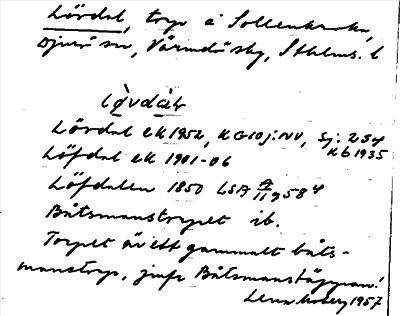 Lövdal, torp å Sollenkroka,
Djurö sn, Värmdö skg, Sthlms. l
lö̀vdàl
Lövdal ek 1952, KG 10j: NV, Sj: 254
Kb 1935
Löfdal ek 1901-06
Löfdalen 1850 LSA A/11 9 58 4
Båtsmanstorpet ib.
Torpet är ett gammalt båts-
manstorp, jmfr Båtsmanstäppan!
Lena 1957